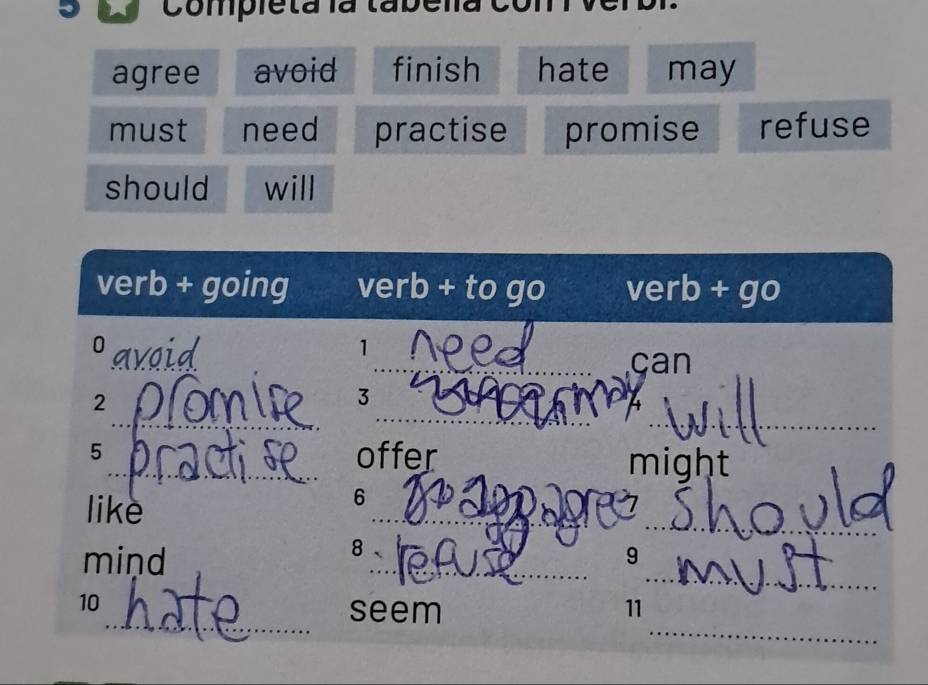 5 Completa la tabella con i verbi.
agree avoid finish hate may
must need practise promise refuse
should will
verb + going verb + to go verb + go
0 avoid 1 need can
2 promise 3 may 4 will
5 practise offer might
like 6 agree 7 should
mind 8 refuse 9 must
10 hate seem 11